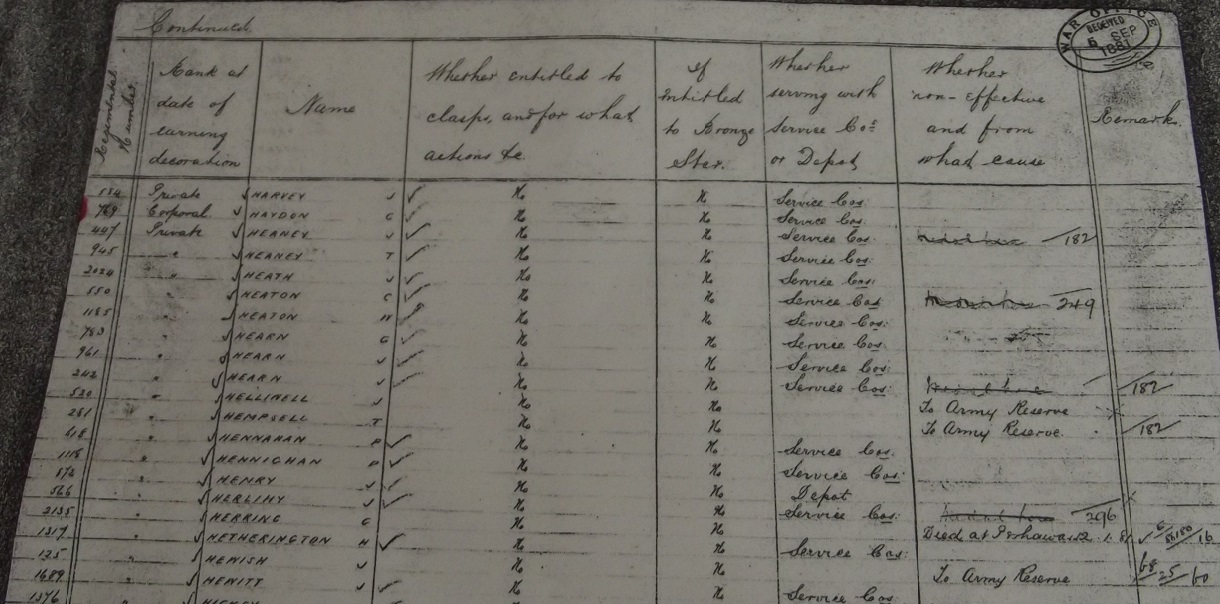 Continued.
WAR OFFICE
RECEIVED
6 SEP
1881
Regimental Number
Rank at date of earning decoration
Name
Whether entitled to clasps, and for what actions &c
If Intitled to Bronze Star.
Whether serving with Service Cos or Depot
Whether non-effective and from what cause
Remarks.
184 Private HARVEY J No No Service Cos.
769 Corporal HAYDON G No No Service Cos.
447 Private HEANEY J No No Service Cos. 182
945 " HEANEY T No No Service Cos.
2024 " HEATH J No No Service Cos.
550 " HEATON G No No Service Cos 249
1185 " HEATON W No No Service Cos.
783 " HEARN G No No Service Cos.
961 " HEARN J No No Service Cos.
242 " HEARN J No No Service Cos. 182
520 " HELLIWELL J No No To Army Reserve
261 " HEMPSELL T No No To Army Reserve. 182
418 " HENNAHAN P No No Service Cos.
1118 " HENNIGHAN P No No Service Cos.
572 " HENRY J No No Depot
566 " HERLIHY J No No Service Cos. 296
2135 " HERRING G No No Died at Peshawar
1317 " HETHERINGTON H No No Service Cos.
125 " HEWISH J No No To Army Reserve
1689 " HEWITT J No No Service Cos
1376 " HICKEY